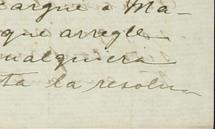 cargue a Ma-
que arregle
ualquiera
ta la resolu-